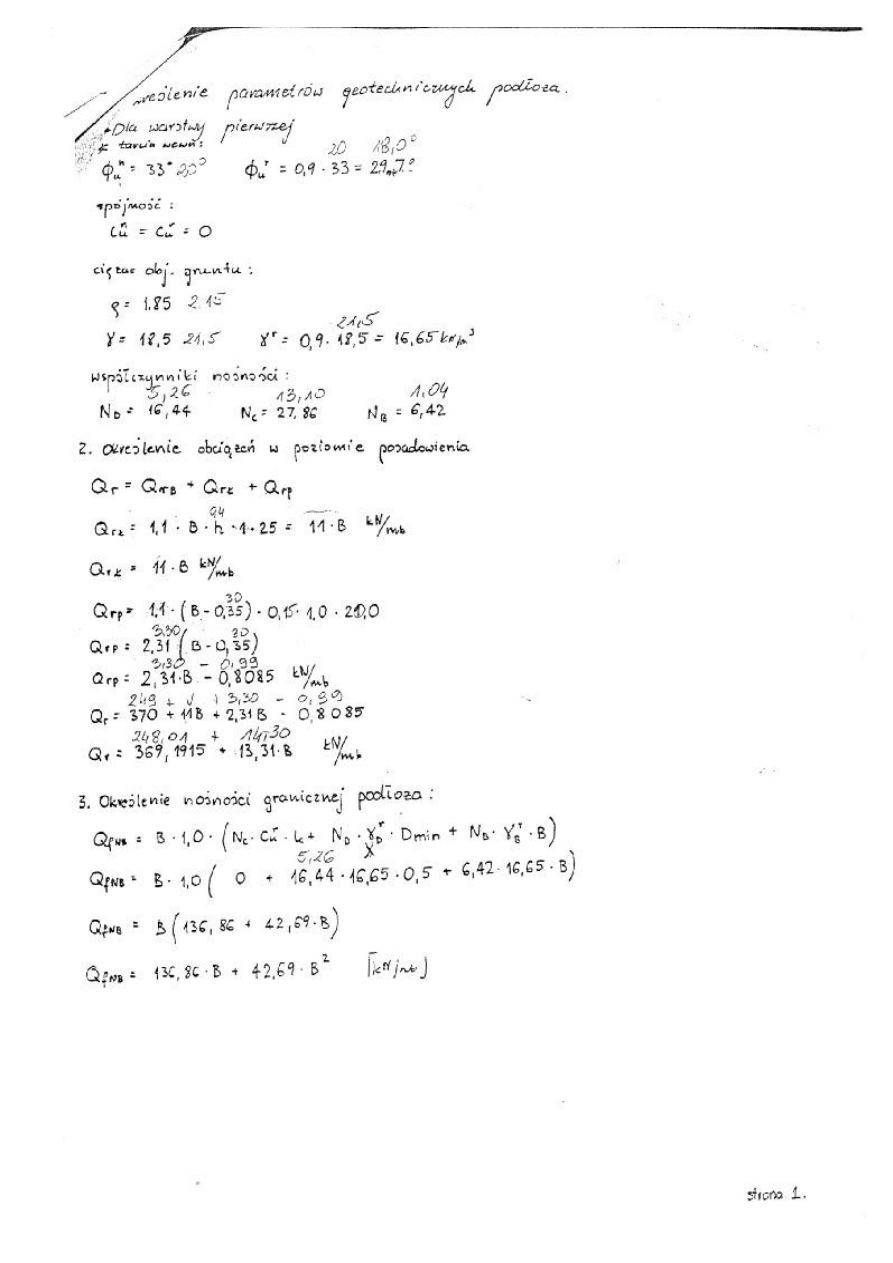 określenie parametrów geotechnicznych podłoża.
• Dla warstwy pierwszej
∢ tarcia wewn:
20 18,0°
ϕuⁿ = 33° 20° ϕuʳ = 0,9 · 33 = 29,7°
spójność :
cuⁿ = cuʳ = 0
ciężar obj. gruntu :
ρ = 1.85 2.15
21,5
γ = 18,5 21,5 γʳ = 0,9 · 18,5 = 16,65 kN/m³
współczynniki nośności :
5,26 13,10 1,04
N_D = 16,44 N_C = 27,86 N_B = 6,42
2. Określenie obciążeń w poziomie posadowienia
Qr = QrB + Qrł + Qrp
94
Qrł = 1,1 · B · h · 1 · 25 = 11 · B kN/mb
Qrł = 11 · B kN/mb
30
Qrp = 1,1 · (B - 0,35) · 0,15 · 1,0 · 20,0
3,30 30
Qrp = 2,31 (B - 0,35)
3,30 - 0,99
Qrp = 2,31·B - 0,8085 kN/mb
249 + 3,30 - 0,99
Qr = 370 + 11B + 2,31B - 0,8085
248,01 + 14,30
Qr = 369,1915 + 13,31·B kN/mb
3. Określenie nośności granicznej podłoża :
QfNB = B · 1,0 · (Nc · cuʳ · ic + N_D · γ_Dʳ · Dmin + N_B · γ_Bʳ · B)
5,26
QfNB = B · 1,0 ( 0 + 16,44 · 16,65 · 0,5 + 6,42 · 16,65 · B)
QfNB = B (136,86 + 42,69·B)
QfNB = 136,86 · B + 42,69 · B² [kN/mb]
strona 1.